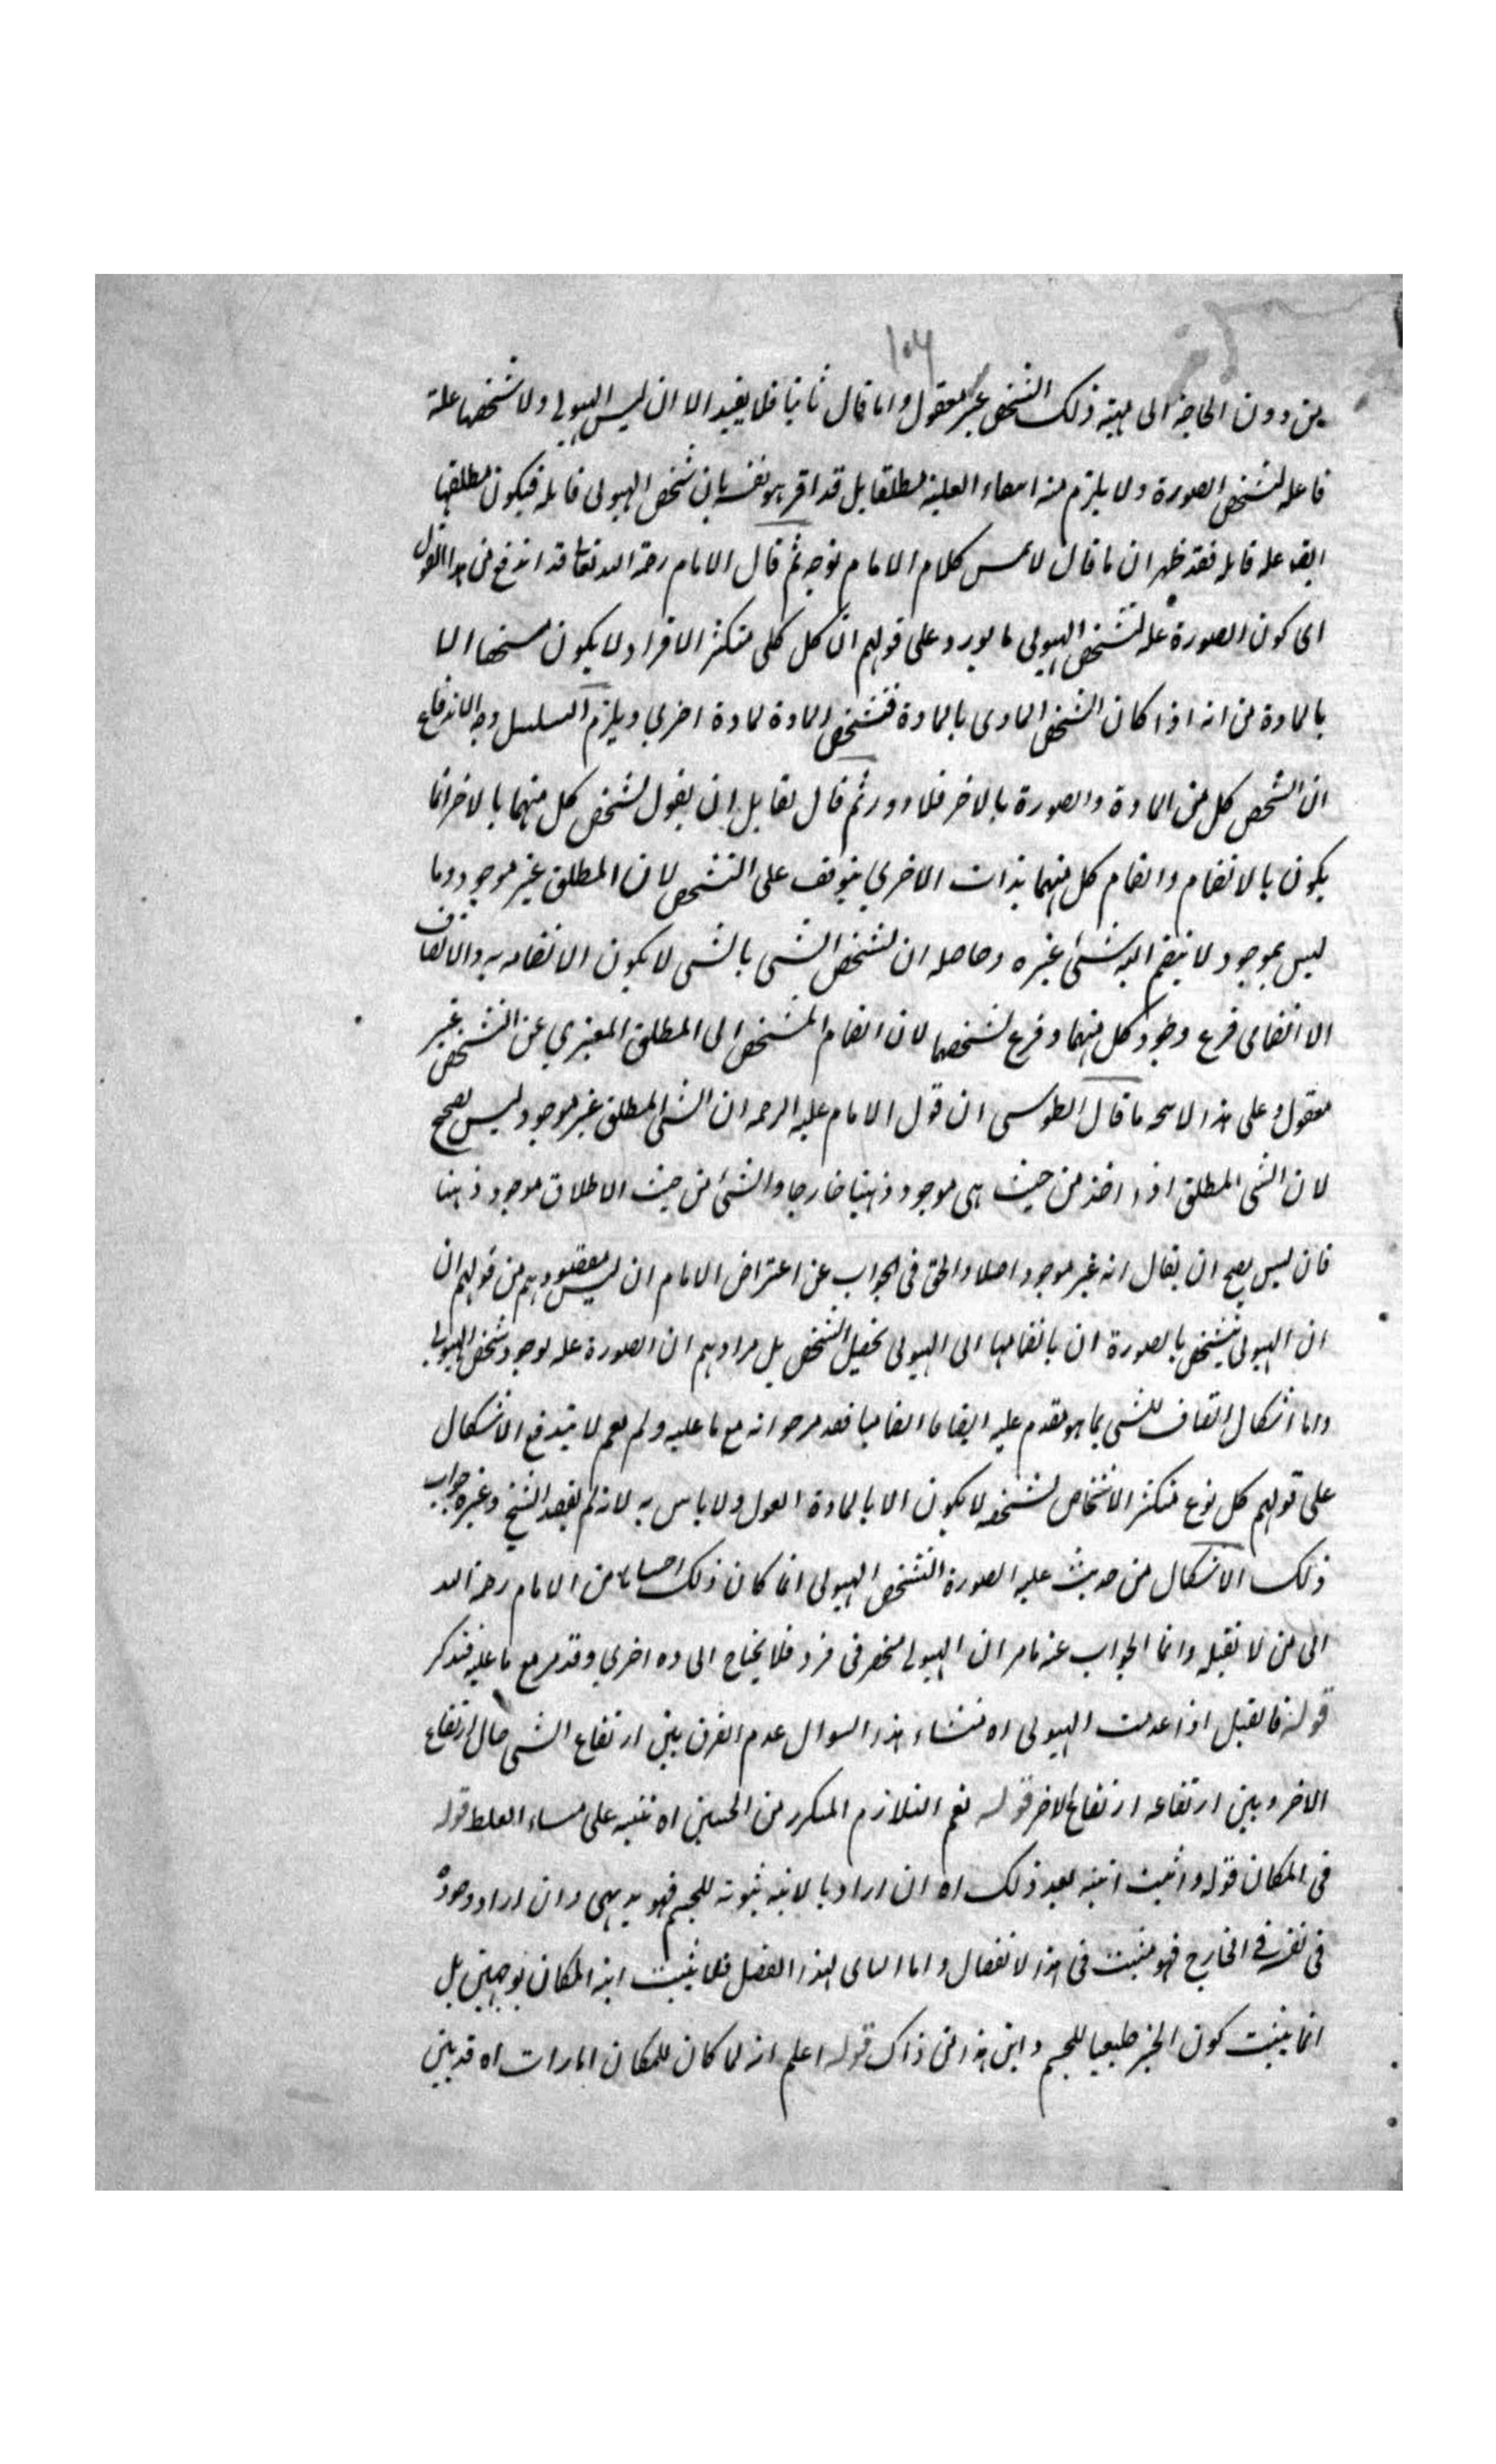 ١٠٦
من دون الحاجة الى مهية ذلك الشخص غير معقول واما قال ثانيا فلا يفيد الا ان ليس الهيولى ولا تشخصها علة
فاعله لتشخص الصورة ولا يلزم منه العلية مطلقا بل قد اقر هو نفسه بان تشخص الهيولى قابله فيكون مطلقها
ايضا علة قابله فقد ظهر ان ما قال لا يمس كلام الامام بوجه ثم قال الامام رحمة الله تعالى قد اندفع من هذا القول
اى كون الصورة علة لتشخص الهيولى ما يورد على قولهم ان كل كلى متكثر الافراد لا يكون الا
بالمادة من انه اذا كان التشخص المادى بالمادة فتشخص المادة لمادة اخرى ويلزم التسلسل وجه الاندفاع
ان التشخص كل من المادة والصورة بالاخر فلا دور ثم قال لقايل ان يقول تشخص كل منهما بالاخر انما
يكون بالانضمام وانضمام كل منهما بذات الاخرى يتوقف على التشخص لان المطلق غير موجود وما
ليس بموجود لا ينضم اليه شئ غيره وحاصله ان تشخص الشى بالشى لا يكون الا نضامه به والاتصاف
الا انضمامى فرع وجود كل منهما وفرع تشخصهما لان انضمام المتشخص الى المطلق عن التشخص غير
معقول وعلى هذا لا ما قال الطوسى ان قول الامام عليه الرحمه ان الشى المطلق غير موجود ليس بصحيح
لان الشى المطلق اذا اخذ من حيث هى موجود ذهنيا خارجا والشئ من حيث الاطلاق موجود ذهنا
فان ليس يصح ان يقال انه غير موجود اصلا والحق فى الجواب عن اعتراض الامام ان ليس مقصودهم من قولهم ان
ان الهيولى يتشخص بالصورة ان بانضمامها الى الهيولى تحصيل الشخص بل مرادهم ان الصورة علة لوجود شخص الهيولى
واما اشكال اتصاف للشى بما هو مقدم عليه مر جوابه مع ما عليه ولم نعم لا يندفع الاشكال
على قولهم كل نوع متكثر الاشخاص تشخصه لا يكون الا بالمادة ولا باس به لانه لم يقصد الشيخ وغيره جواب
ذلك الاشكال من حديث علية الصورة التشخص الهيولى انما كان ذلك من الامام رحمة الله
الى من لا نقبله وانما الجواب عنه ما مر ان الهيولى منحصر فى فرد فلا يحتاج الى ده اخرى وقد مر مع ما عليه فتذكر
قوله اذا عدمت الهيولى اه منشاء هذا السوال عدم الفرق بين ارتفاع الشى حال ارتفاع
الاخر وبين ارتفاعه ارتفاع الاخر قوله نعم التلازم المكرر من اه تنبيه على الغلط قوله
فى المكان قوله واثبت انيته بعد ذلك اه ان اراد بالانيه ثبوته للجسم فهو بديهى وان اراد وجوده
فى نفسه فى الخارج فهو مثبت فى هذا لا نفصال واما لهذا الفصل فلا يثبت اينه المكان بوجهين بل
انما يثبت كون الحيز طبيعيا للجسم واين هذا من ذاك قوله اعلم انه لما كان للمكان امارات اه قد بين